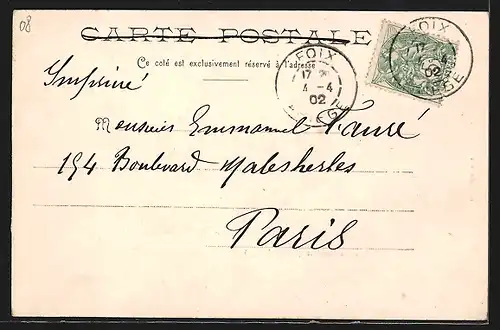 08
CARTE POSTALE
Ce côté est exclusivement réservé à l'adresse
FOIX
17
4 - 4
02
FOIX
17
4
02
Imprimé
Monsieur Emmanuel Fauré
154 Boulevard Malesherbes
Paris